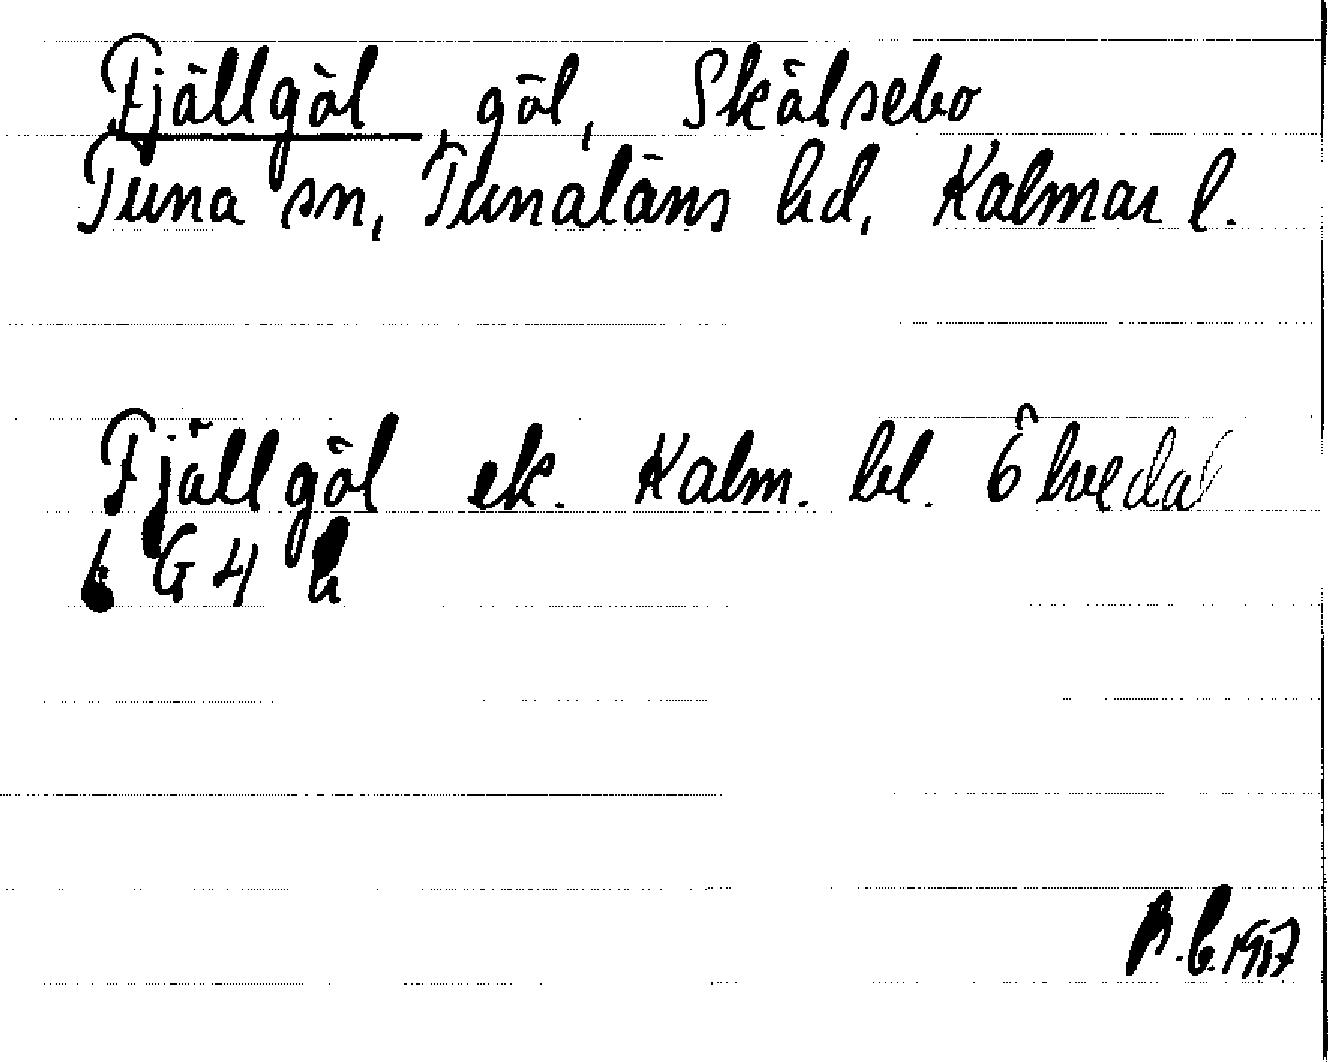 Fjällgöl, göl, Skälsebo
Tuna sn, Tunaläns hd, Kalmar l.
Fjällgöl ek. Kalm. bl. 6 hvedal
6 G 4 h
B.C. 1957